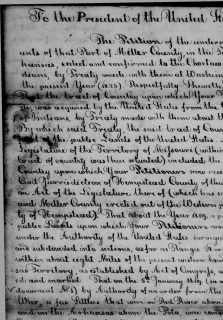 To the President of the United St
The Petition of the under
ants of that Part of Miller County, in the
kansas, ceded and confirmed to the Choctaw
dians, by Treaty made with them at Washin
the present Year (1825) Respectfully Sheweth,
that the tract of Country upon which Your
was acquired by the United States from the
of Indians, by Treaty made with them about the
By which said Treaty, the said tract of Coun
of the public Lands of the United States
Legislature of the Territory of Missouri (within
tract of country was then situated) included the
Country upon which Your Petitioners now resi
and Jurisdiction of Hempstead County of that
an Act of the Legislature there of (which has
and Miller County erected out of the Western
ty of Hempstead). That about the Year 1819, a
public Lands upon which Your Petitioners now
under the Authority of the United States survey
and subdivided into sections, as far as Range
within about eight Miles of the present eastern boun
sas Territory, as established by Act of Congress,
ed and marked. That on the 5th January 1819, (in a
document A.) by Authority of an order from the
War, a few Settlers that were on Red River above
and on the Arkansas above the Poto, were